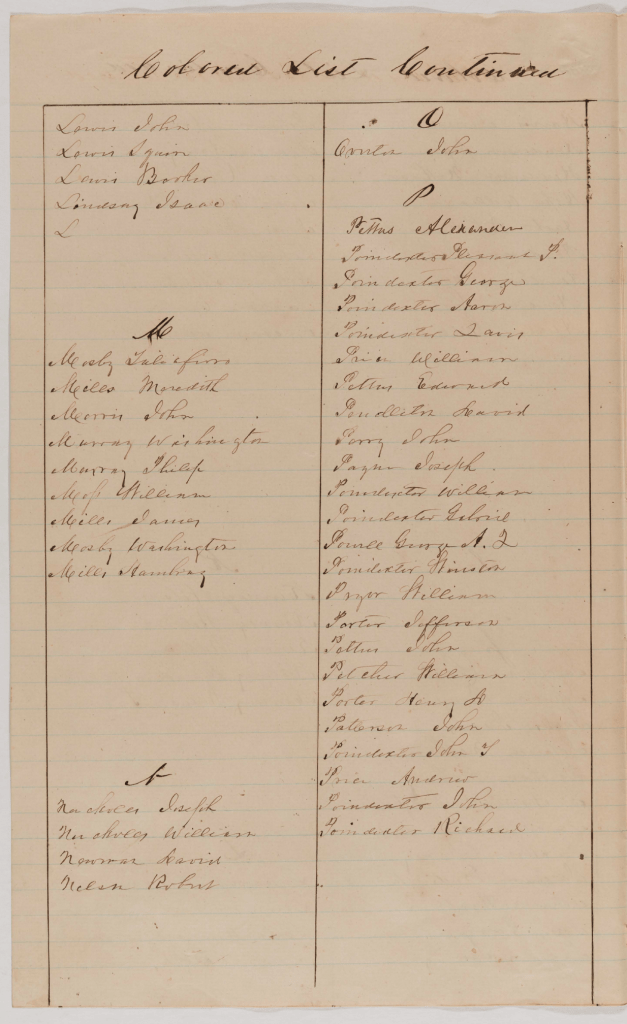 Colored List Continued
Lewis John
Lewis Squire
Lewis Booker
Lindsay Isaac
L
M
Mosby Taliaferro
Mills Meredith
Morris John
Murray Washington
Murray Philip
Moss William
Mills James
Mosby Washington
Mills
N
Nucholes Joseph
Nucholes William
Newman David
Nelson Robert
O
John
P
Pettus Alexander
Poindexter Pleasant P.
Poindexter George
Poindexter Aaron
Poindexter Davis
Price William
Pettus Edward
Pendleton David
Perry John
Payne Joseph
Poindexter William
Poindexter Gabriel
Powell George A. T
Poindexter Winston
Pryor William
Porter Jefferson
Pettus John
Pitcher William
Porter Henry D
Patterson John
Poindexter John T
Price Andrew
Poindexter John
Poindexter Richard